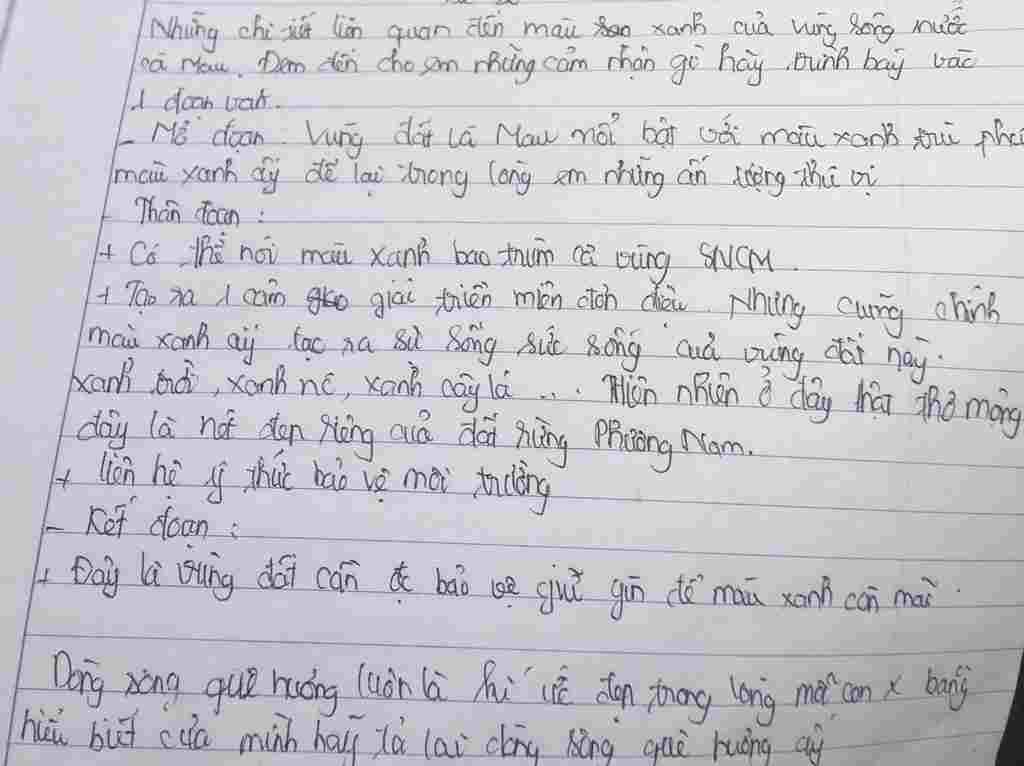 Những chi tiết liên quan đến màu xanh của vùng sông nước
Cà Mau. Đem đến cho em những cảm nhận gì hãy trình bày vào
1 đoạn văn.
- Mở đoạn. Vùng đất Cà Mau nổi bật với màu xanh trù phú
màu xanh ấy để lại trong lòng em những ấn tượng thú vị
- Thân đoạn :
+ Có thể nói màu xanh bao trùm cả vùng SNCM.
+ Tạo ra 1 cảm giác triền miên đơn điệu. Nhưng cũng chính
màu xanh ấy tạo ra sự sống sức sống của vùng đất này.
xanh trời, xanh nc, xanh cây lá ... Thiên nhiên ở đây thật thơ mộng
đây là nét đẹp riêng của đất rừng Phương Nam.
+ liên hệ ý thức bảo vệ môi trường
- Kết đoạn :
+ Đây là vùng đất cần đc bảo vệ giữ gìn để màu xanh còn mãi.
Dòng sông quê hương luôn là kí ức đẹp trong lòng mỗi con x bằng
hiểu biết của mình hãy tả lại dòng sông quê hương ấy